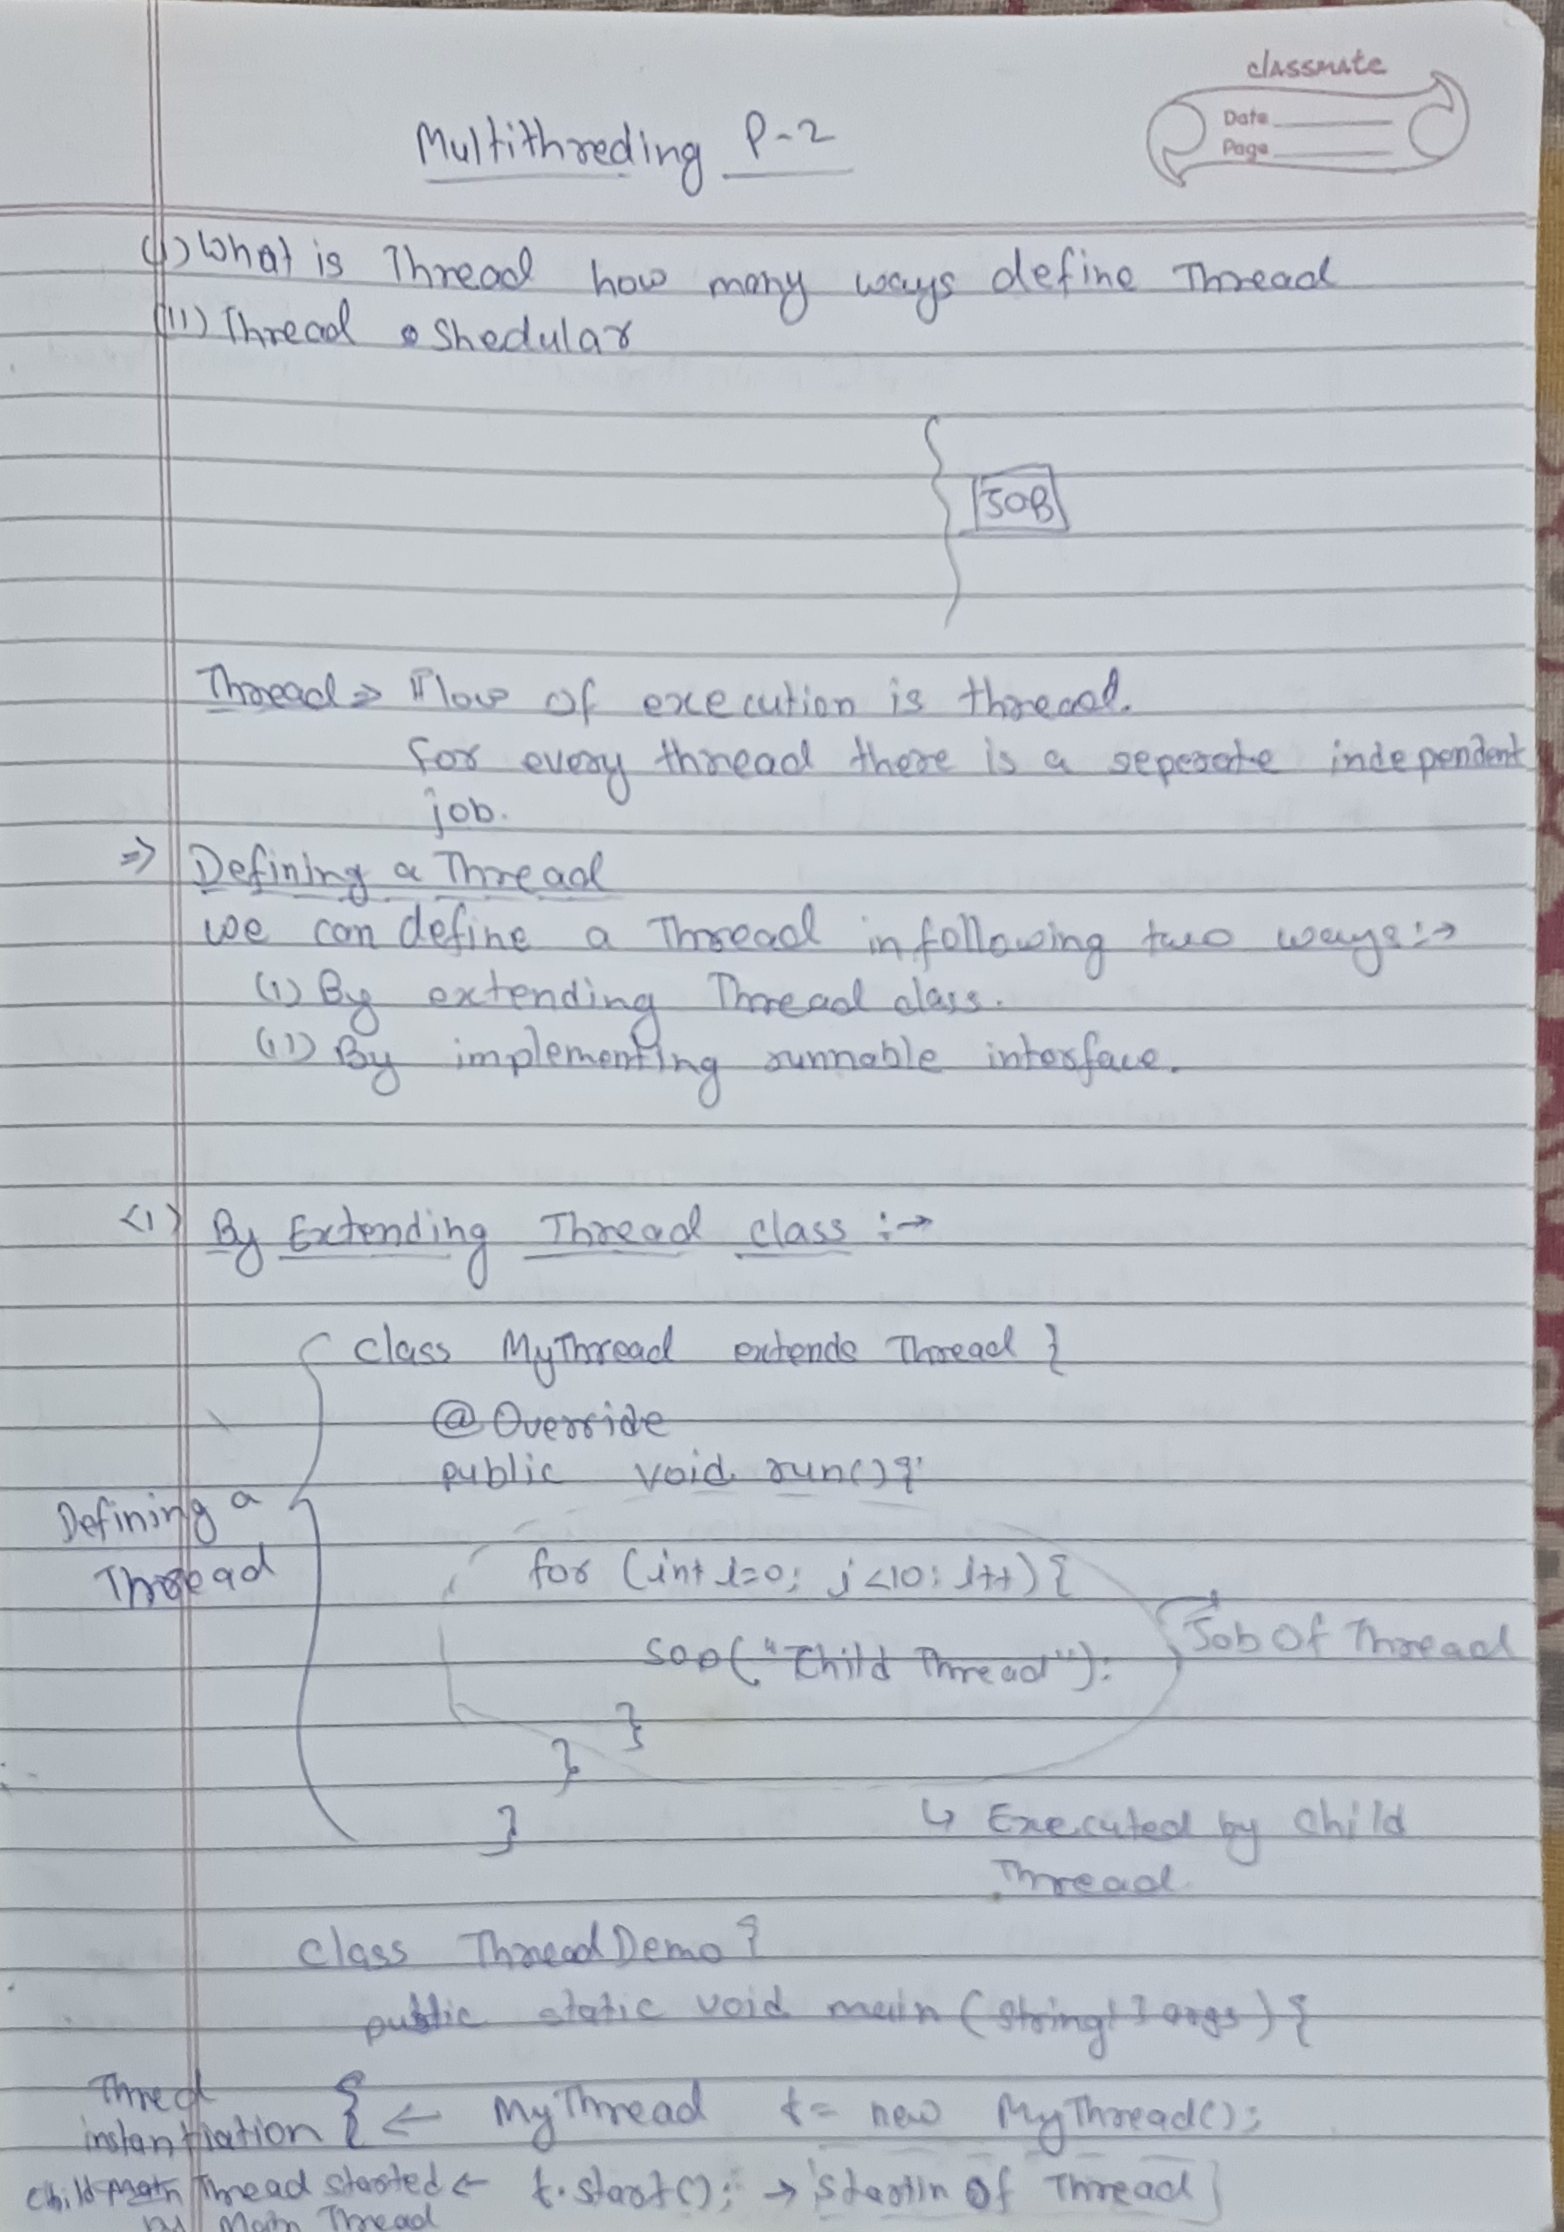 classmate
Date
Page
Multithreding P-2
(I) What is Thread how many ways define Thread
(II) Thread Shedular
JOB
Thread ⇒ Flow of execution is thread.
for every thread there is a seperate independent
job.
⇒ Defining a Thread
we can define a Thread in following two ways:→
(i) By extending Thread class.
(ii) By implementing runnable interface.
(1) By Extending Thread class :→
class MyThread extends Thread {
@Override
public void run(){
Defining a
Thread
for (int i=0; i<10; i++){
sop("Child Thread");
Job Of Thread
}
}
}
↳ Executed by child
Thread.
class ThreadDemo {
public static void main (String[] args) {
Thred
instantiation { ← MyThread t = new MyThread();
child Thread started ← t.start(); → Startin Of Thread
by Main Thread